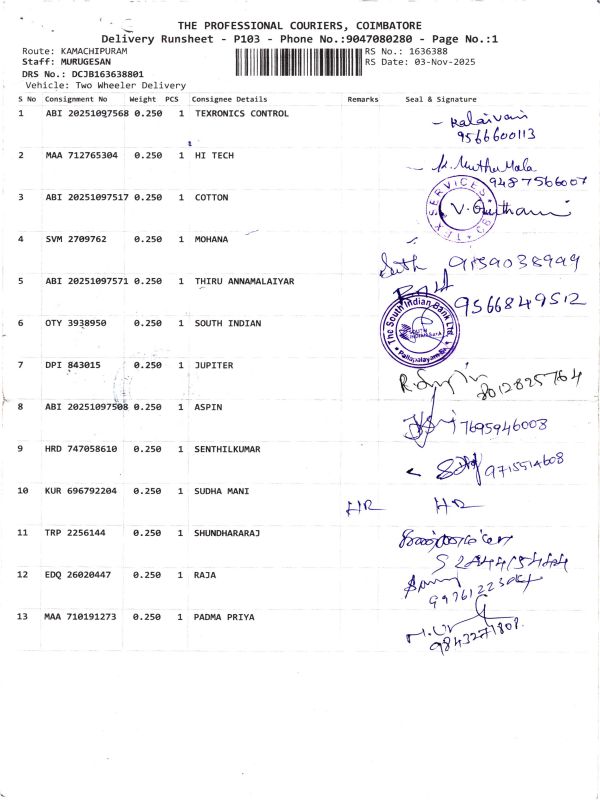 THE PROFESSIONAL COURIERS, COIMBATORE
Delivery Runsheet - P103 - Phone No.:9047080280 - Page No.:1
Route: KAMACHIPURAM RS No.: 1636388
Staff: MURUGESAN RS Date: 03-Nov-2025
DRS No.: DCJB163638801
Vehicle: Two Wheeler Delivery
S No Consignment No Weight PCS Consignee Details Remarks Seal & Signature
1 ABI 20251097568 0.250 1 TEXRONICS CONTROL - Kalaivani
9566600113
2 MAA 712765304 0.250 1 HI TECH - M. Muthu Mala
9487566007
3 ABI 20251097517 0.250 1 COTTON SERVICES
4 SVM 2709762 0.250 1 MOHANA
9159038999
5 ABI 20251097571 0.250 1 THIRU ANNAMALAIYAR
9566849512
6 OTY 3938950 0.250 1 SOUTH INDIAN The South Indian Bank Ltd.
7 DPI 843015 0.250 1 JUPITER
8 ABI 20251097508 0.250 1 ASPIN 7695946003
9 HRD 747058610 0.250 1 SENTHILKUMAR 9715514608
10 KUR 696792204 0.250 1 SUDHA MANI HR HR
11 TRP 2256144 0.250 1 SHUNDHARARAJ
12 EDQ 26020447 0.250 1 RAJA
13 MAA 710191273 0.250 1 PADMA PRIYA
9843271808.